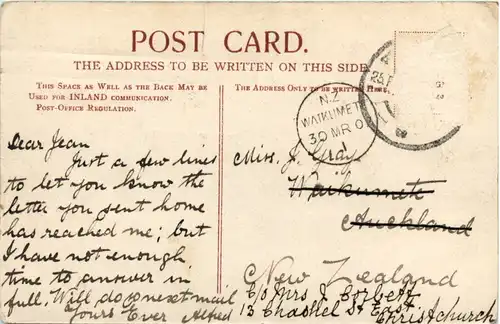 POST CARD.
THE ADDRESS TO BE WRITTEN ON THIS SIDE
THIS SPACE AS WELL AS THE BACK MAY BE
USED FOR INLAND COMMUNICATION.
POST-OFFICE REGULATION.
THE ADDRESS ONLY TO BE WRITTEN HERE.
N.Z.
WAIKUMETE
30 MR 0
Dear Jean
Just a few lines
to let you know the
letter you sent home
has reached me; but
I have not enough
time to answer in
full. Will do so next mail
Yours Ever Alfred
Miss. J. Gray.
Waikumete
Auckland
New Zealand
C/o Mrs J Corbett
13 St East
Christchurch